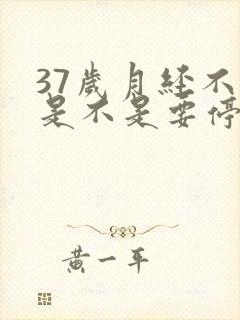 37歲月經不
是不是要停
黃一平